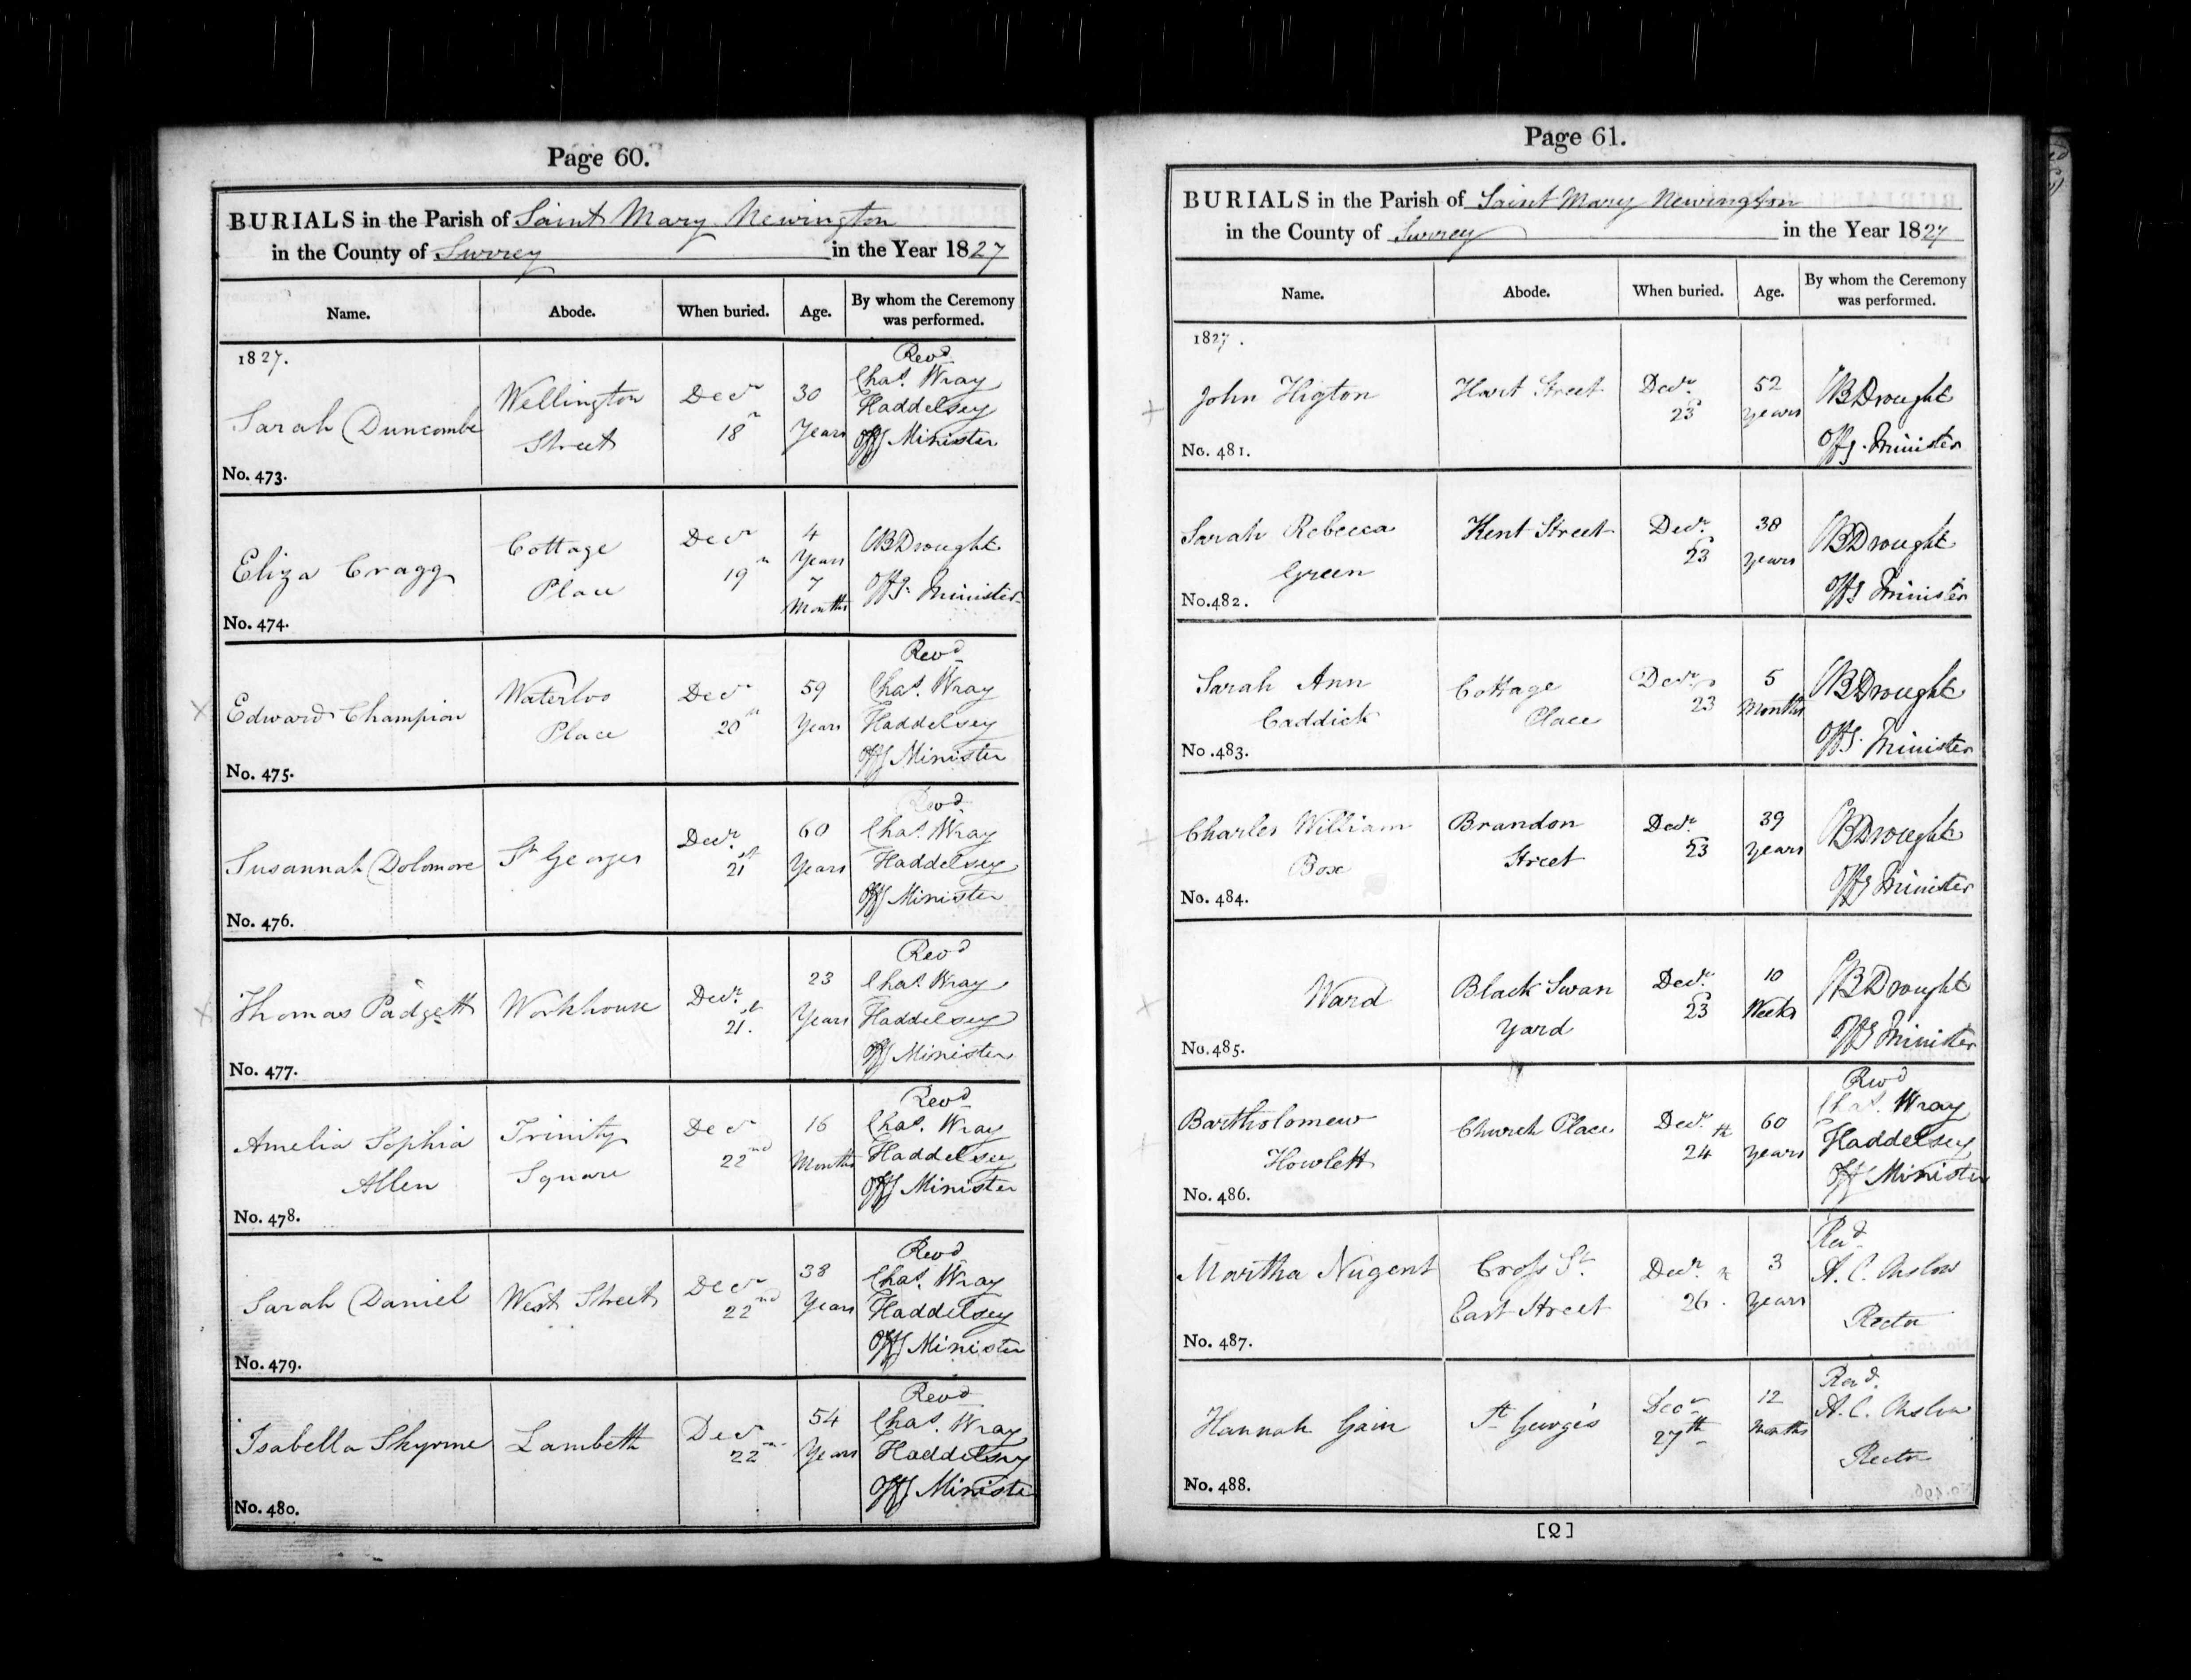 Page 60.
BURIALS in the Parish of Saint Mary Newington
in the County of Surrey in the Year 1827
Name. Abode. When buried. Age. By whom the Ceremony was performed.
1827.
Sarah Duncombe Wellington Street Decr 18th 30 Years Revd Chas. Wray Haddelsey Offg Minister
No. 473.
Eliza Cragg Cottage Place Decr 19th 4 Years 7 Months WBDrought Offg Minister
No. 474.
Edward Champion Waterloo Place Decr 20th 59 Years Revd Chas. Wray Haddelsey Offg Minister
No. 475.
Susannah Dolomore St Georges Decr. 21st 60 Years Revd. Chas. Wray Haddelsey Offg Minister
No. 476.
Thomas Padgett Workhouse Decr. 21st. 23 Years Revd Chas. Wray Haddelsey Offg Minister
No. 477.
Amelia Sophia Allen Trinity Square Decr 22nd 16 Months Revd Chas. Wray Haddelsey Offg Minister
No. 478.
Sarah Daniel West Street Decr 22nd 38 Years Revd Chas. Wray Haddelsey Offg Minister
No. 479.
Isabella Skyrme Lambeth Decr 22nd 54 Years Revd Chas. Wray Haddelsey Offg Minister
No. 480.
Page 61.
BURIALS in the Parish of Saint Mary Newington
in the County of Surrey in the Year 1827
Name. Abode. When buried. Age. By whom the Ceremony was performed.
1827.
John Higton Hart Street Decr. 23 52 Years Drought Offg. Minister
No. 481.
Sarah Rebecca Green Kent Street Decr. 23 38 Years Drought Offg Minister
No. 482.
Sarah Ann Caddick Cottage Place Decr. 23 5 Months Drought Offg. Minister
No. 483.
Charles William Box Brandon Street Decr. 23 39 Years Drought Offg Minister
No. 484.
Ward Black Swan Yard Decr. 23 10 Weeks Drought Offg Minister
No. 485.
Bartholomew Howlett Church Place Decr. 24th 60 Years Revd Chas. Wray Haddelsey Offg Minister
No. 486.
Martha Nugent Cross St East Street Decr. 26th 3 Years Revd. A. C. Onslow Rector
No. 487.
Hannah Gain St George's Decr 27th 12 Months Revd. A. C. Onslow Rector
No. 488.
[Q]